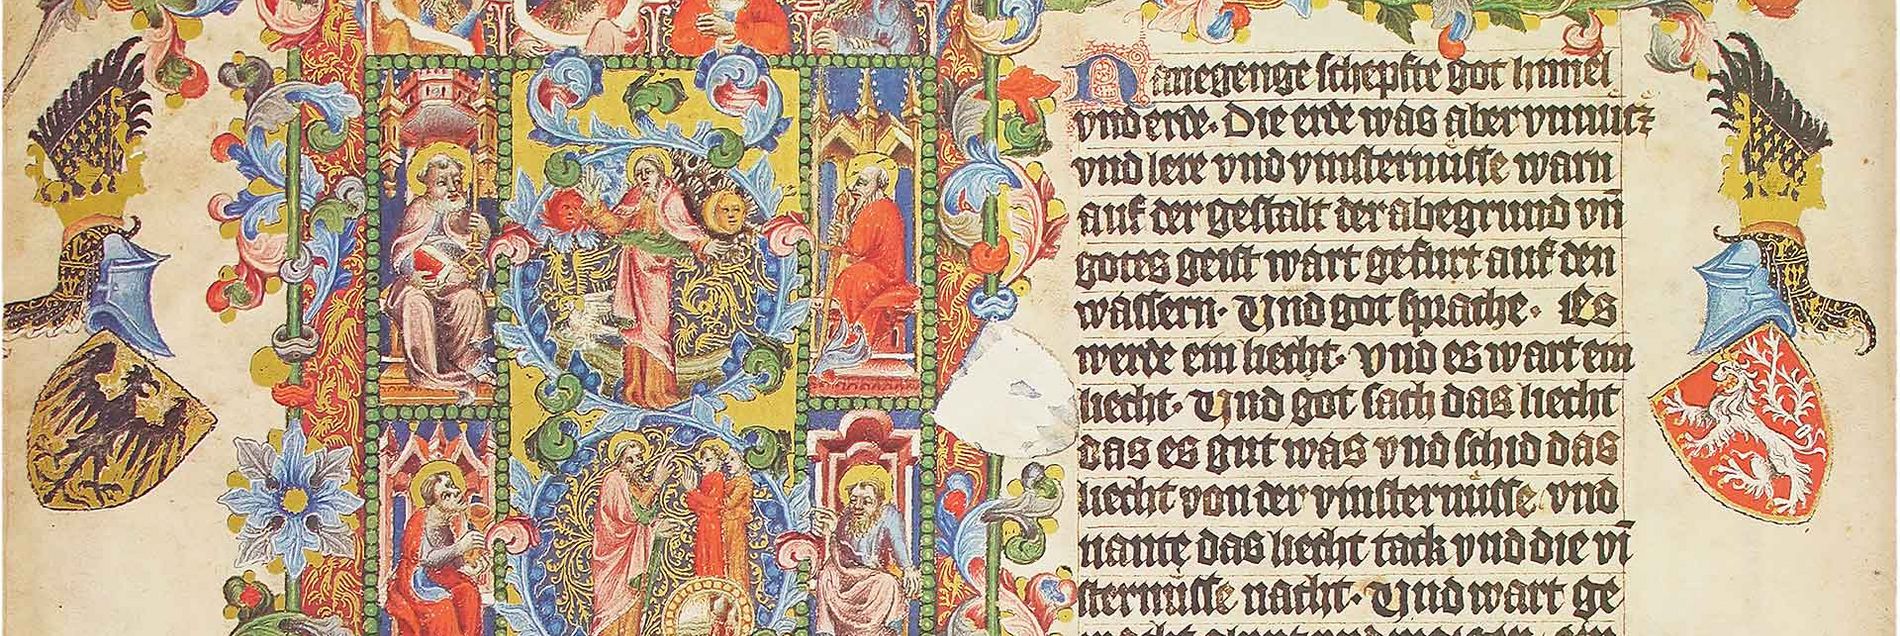 N anegenge schepfte got himel
vnd erde. Die erde was aber vnnutz
vnd lere vnd vinsternusse warn
auf der gestalt der abegrund vn̄
gotes geist wart gefurt auf den
wassern. Vnd got sprache. Es
werde ein liecht. vnd es wart ein
liecht. Vnd got sach das liecht
das es gut was vnd schid das
liecht von der vinsternusse. vnd
nante das liecht tack vnd die vi
sternusse nacht. Vnd wart ge